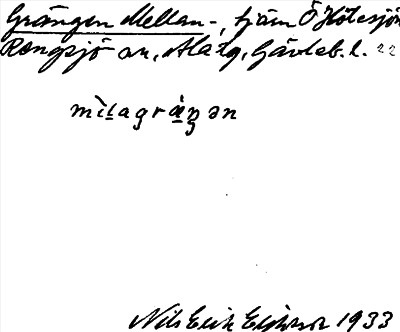 Grängen Mellan-, tjärn Ö Hölesjön
Rengsjö sn, Ala tg, Gävleb. l. 22
mìlagrä̀ŋən
Nils Erik 1933